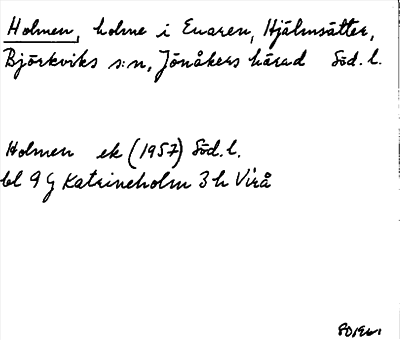 Holmen, holme i Enaren, Hjälmsätter,
Björkviks s:n, Jönåkers härad Söd. l.
Holmen ek (1957) Söd. l.
bl 9 G Katrineholm 3 h Virå